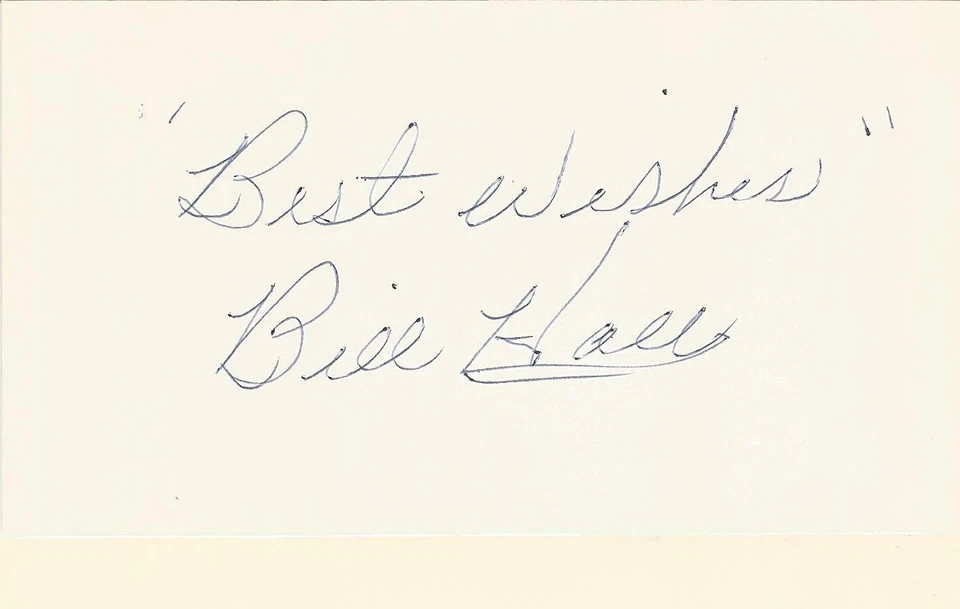 "Best Wishes"
Bill Hall